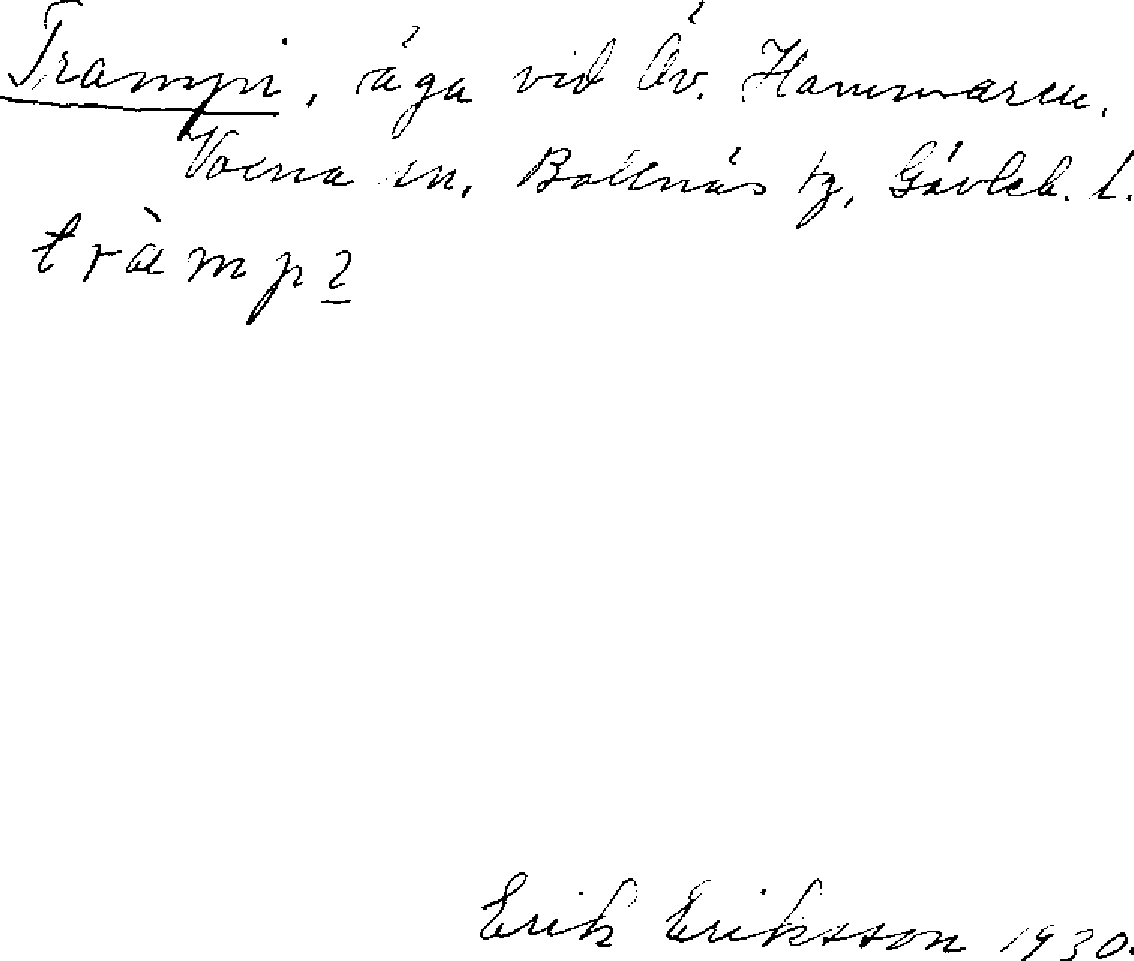 Trampi, äga vid Öv. Hammaren.
Voxna sn. Bollnäs tg, Gävleb. l.
tràmpı̲
Erik Eriksson 1930.